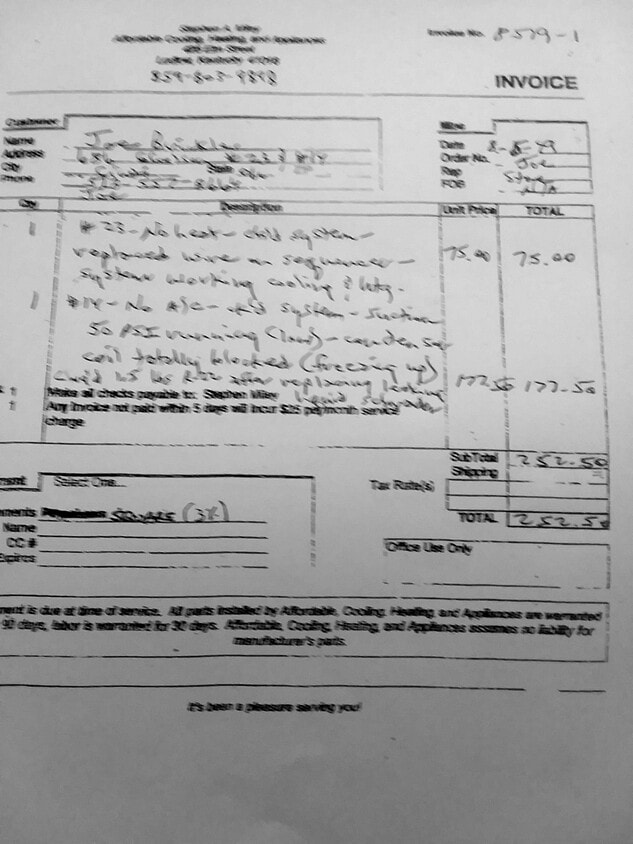 Stephen A. Wiley
Affordable Cooling, Heating, and Appliances
Street
Ludlow, Kentucky 41016
859-803-9898
Invoice No. 8579-1
INVOICE
Customer
Name Joe
Address #23 & #14
City State
Phone
Joe
Misc
Date
Order No. Joe
Rep Steve
FOB N/A
Qty Description Unit Price TOTAL
1 #23-No heat-chkd system-
replaced wire on sequencer- 75.00 75.00
system working cooling & htg.
1 #14-No A/C-chkd system-suction
50 PSI running (low)-condenser
coil totally blocked (freezing up)
1.5 lbs R-22 after replacing leaking 177.50 177.50
liquid schrader
Make all checks payable to: Stephen Wiley
Any invoice not paid within 5 days will incur $25 per/month service
charge
SubTotal 252.50
Shipping
Tax Rate(s)
TOTAL 252.50
ment Select One...
ments (3%)
Name
CC #
Expires
Office Use Only
ment is due at time of service. All parts installed by Affordable, Cooling, Heating, and Appliances are warranted
90 days, labor is warranted for 30 days. Affordable, Cooling, Heating, and Appliances assumes no liability for
manufacturer's parts.
It's been a pleasure serving you!